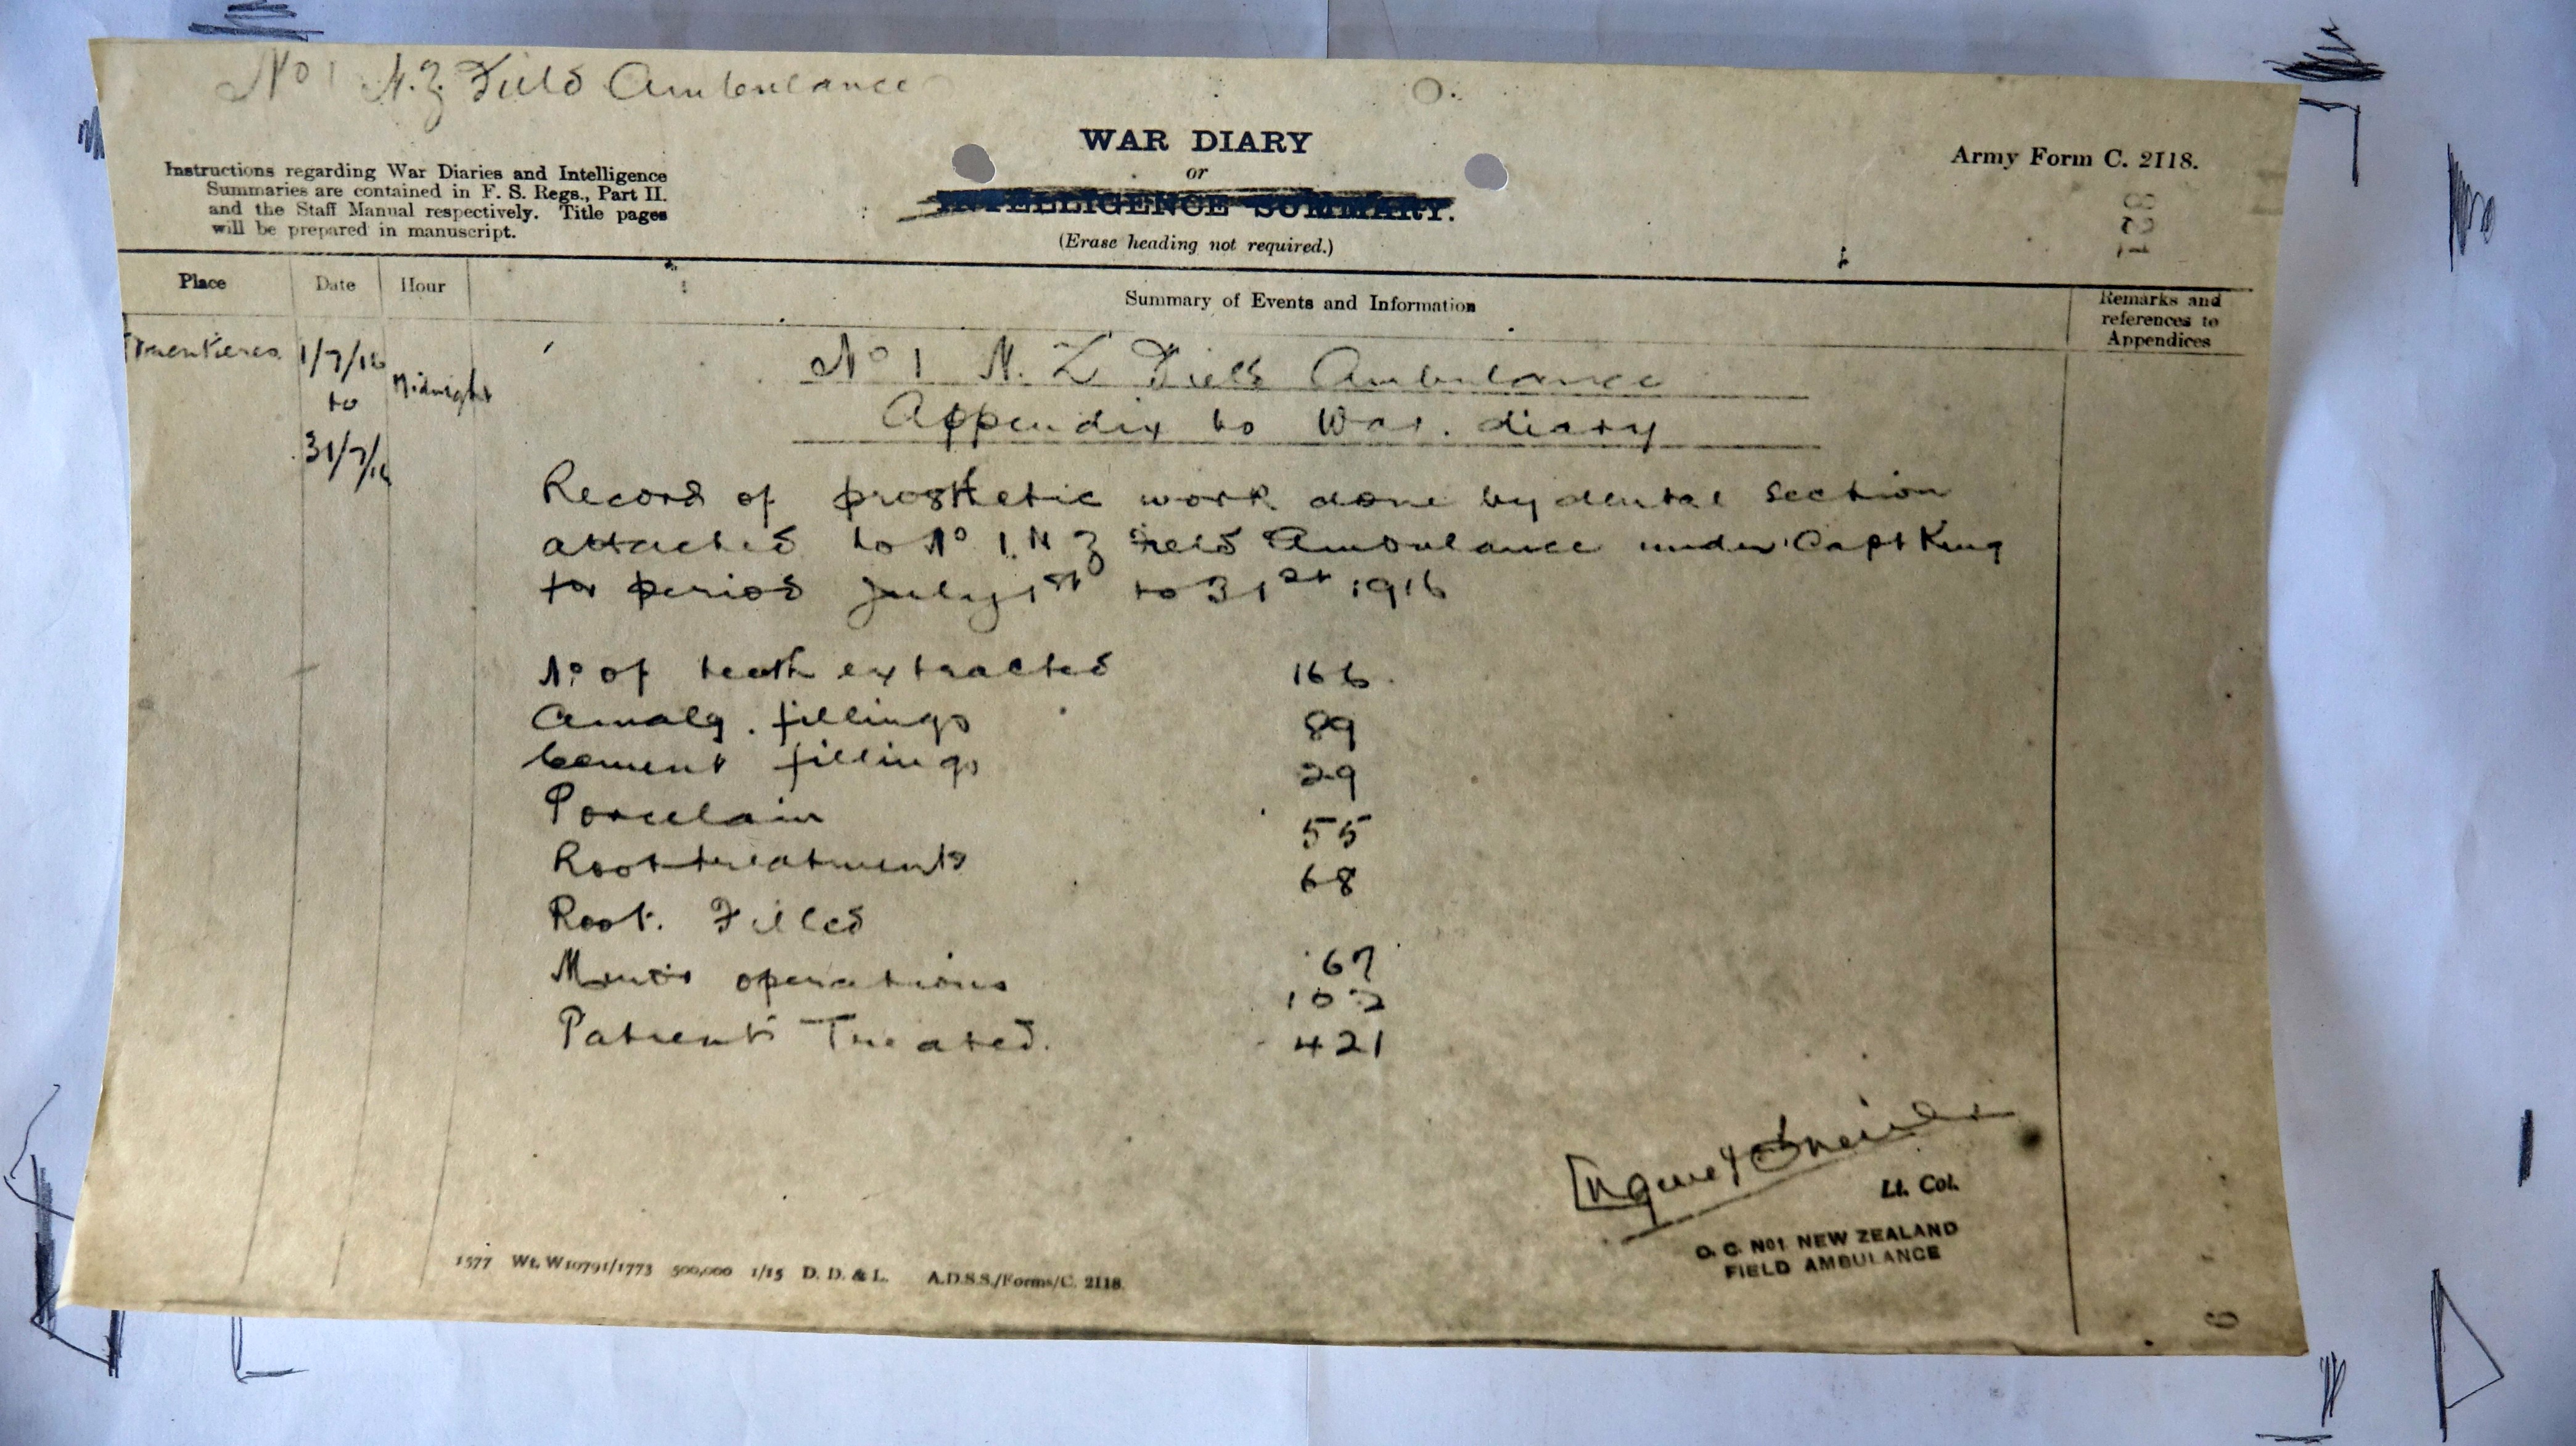 No 1 N.Z Field Ambulance
WAR DIARY
or
INTELLIGENCE SUMMARY.
(Erase heading not required.)
Instructions regarding War Diaries and Intelligence
Summaries are contained in F. S. Regs., Part II.
and the Staff Manual respectively. Title pages
will be prepared in manuscript.
Army Form C. 2118.
821
Place Date Hour Summary of Events and Information
Remarks and
references to
Appendices
1/7/16
to
31/7/16
Midnight
No 1 N. Z Field Ambulance
Appendix to War. diary
Record of prosthetic work done by dental section
attached to No 1. N Z Field Ambulance under Capt King
for period July 1st to 31st 1916
No of teeth extracted 166
Amalg. fillings 89
Cement fillings 29
Porcelain 55
Root treatments 68
Root. Filled 67
Minor operations 102
Patients Treated. 421
Lt. Col.
O. C. No1 NEW ZEALAND
FIELD AMBULANCE
1577 Wt. W10791/1773 500,000 1/15 D. D. & L. A.D.S.S./Forms/C. 2118.
6